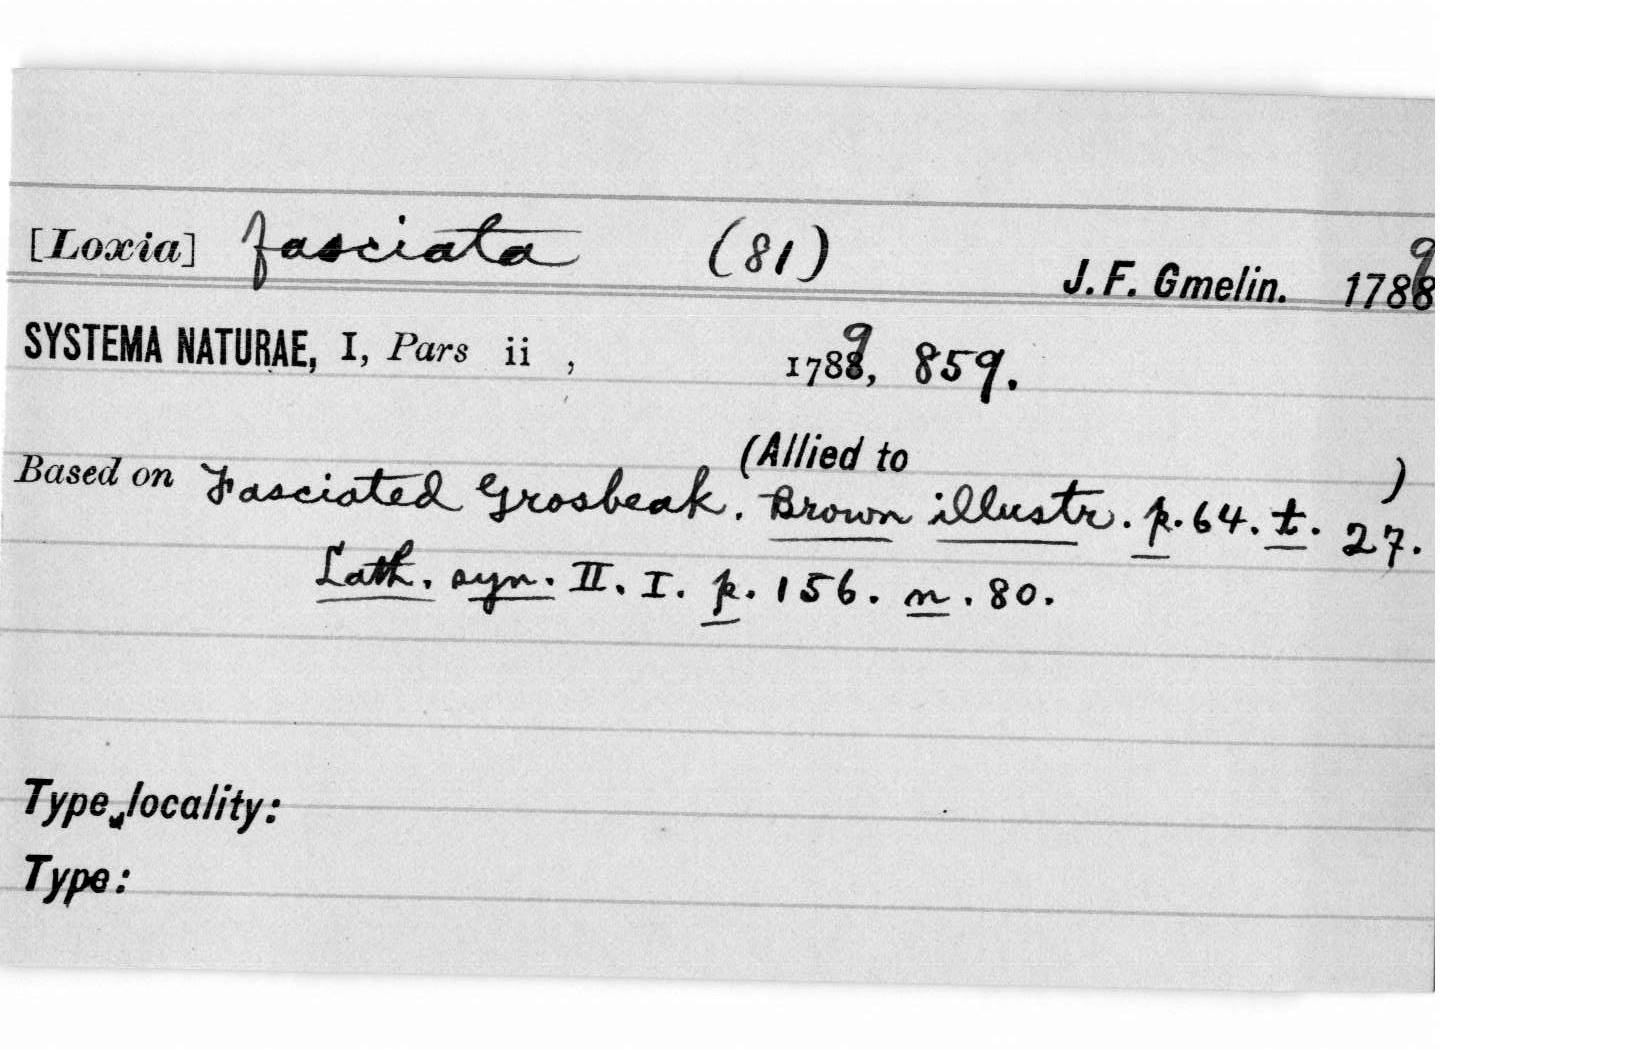 [Loxia] fasciata (81) J. F. Gmelin. 1789
SYSTEMA NATURAE, I, Pars ii , 1789, 859.
(Allied to )
Based on Fasciated Grosbeak. Brown illustr. p. 64. t. 27.
Lath. syn. II. I. p. 156. n. 80.
Type locality:
Type: